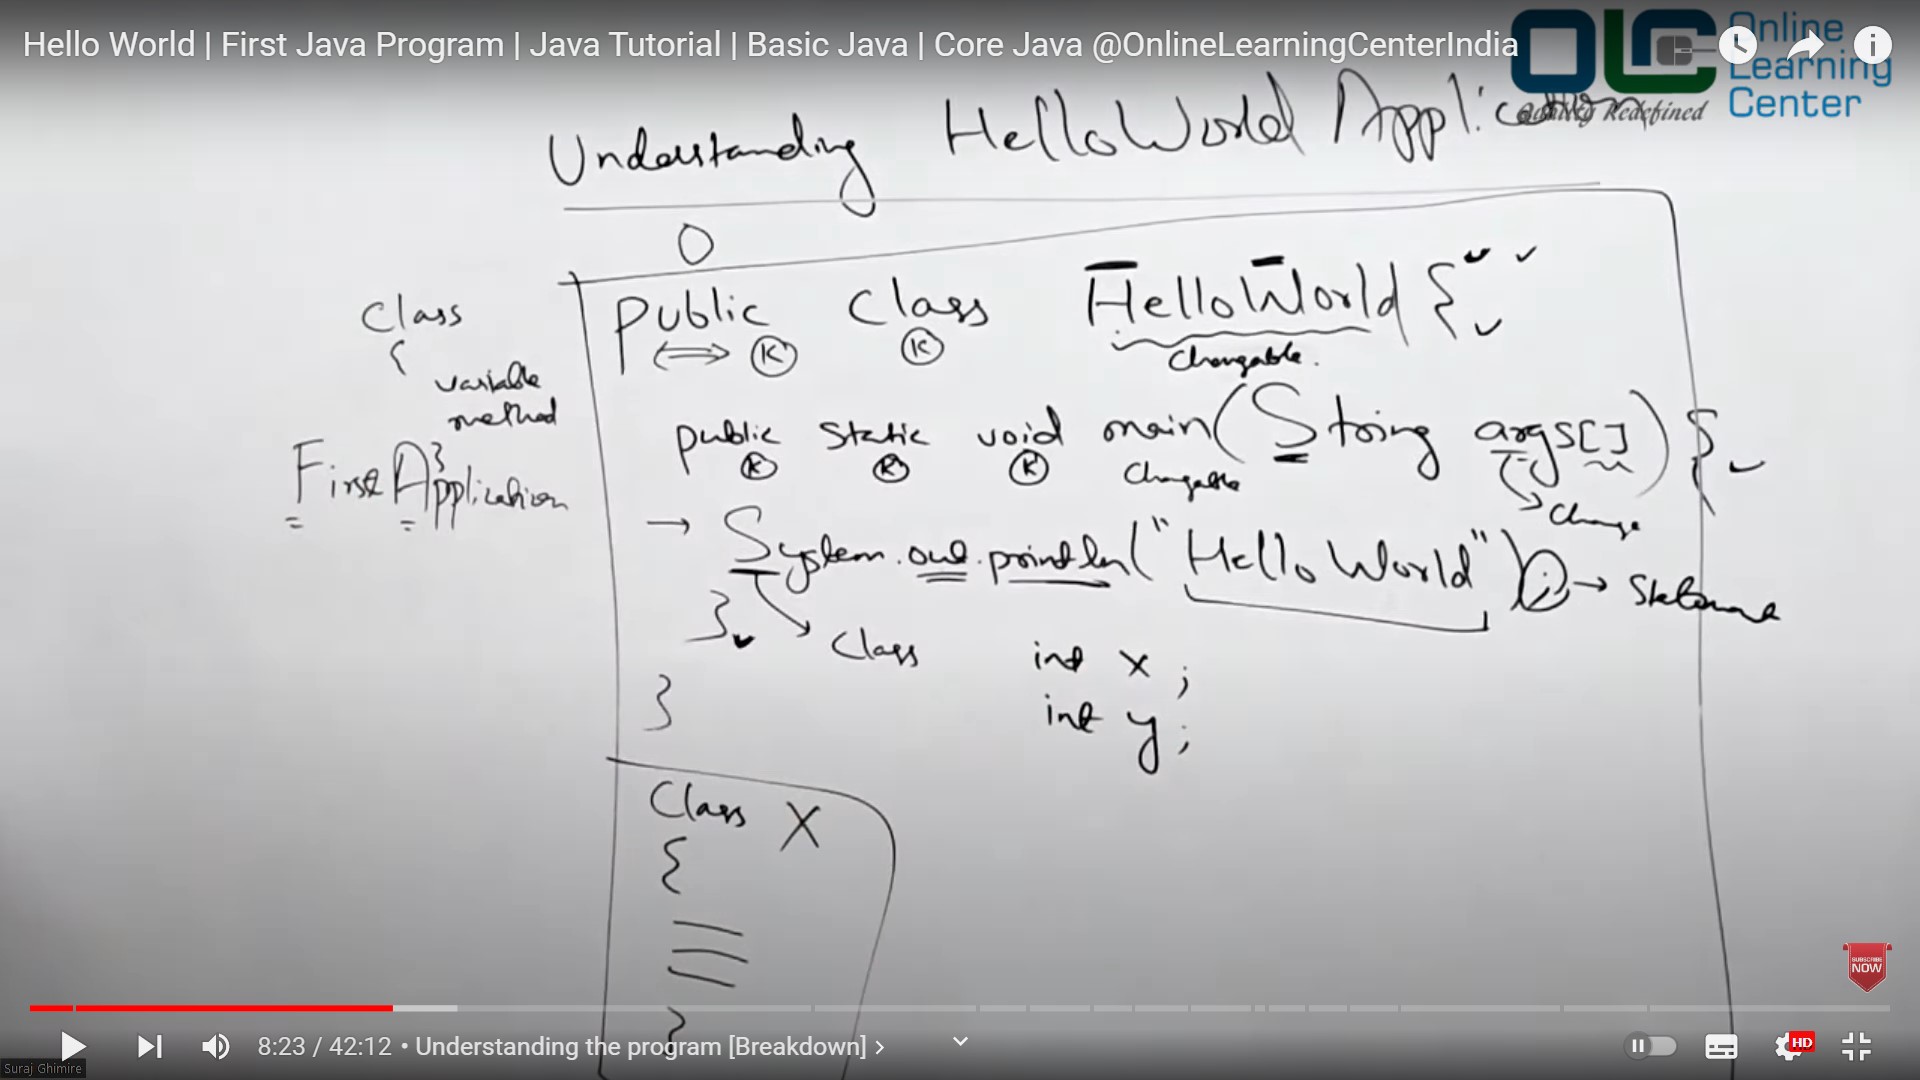 Hello World | First Java Program | Java Tutorial | Basic Java | Core Java @OnlineLearningCenterIndia
Online
Learning
Center
Quality Redefined
Understanding HelloWorld Application
Public Class HelloWorld {
K K
Changable.
Class
{
variable
method
}
FirstApplication
public static void main(String args[]) {
K K K
Changable
Change
→ System.out.println("Hello World"); → Statement
}
Class
int x ;
int y ;
}
Class X
{
}
SUBSCRIBE
NOW
8:23 / 42:12 • Understanding the program [Breakdown] >
HD
Suraj Ghimire